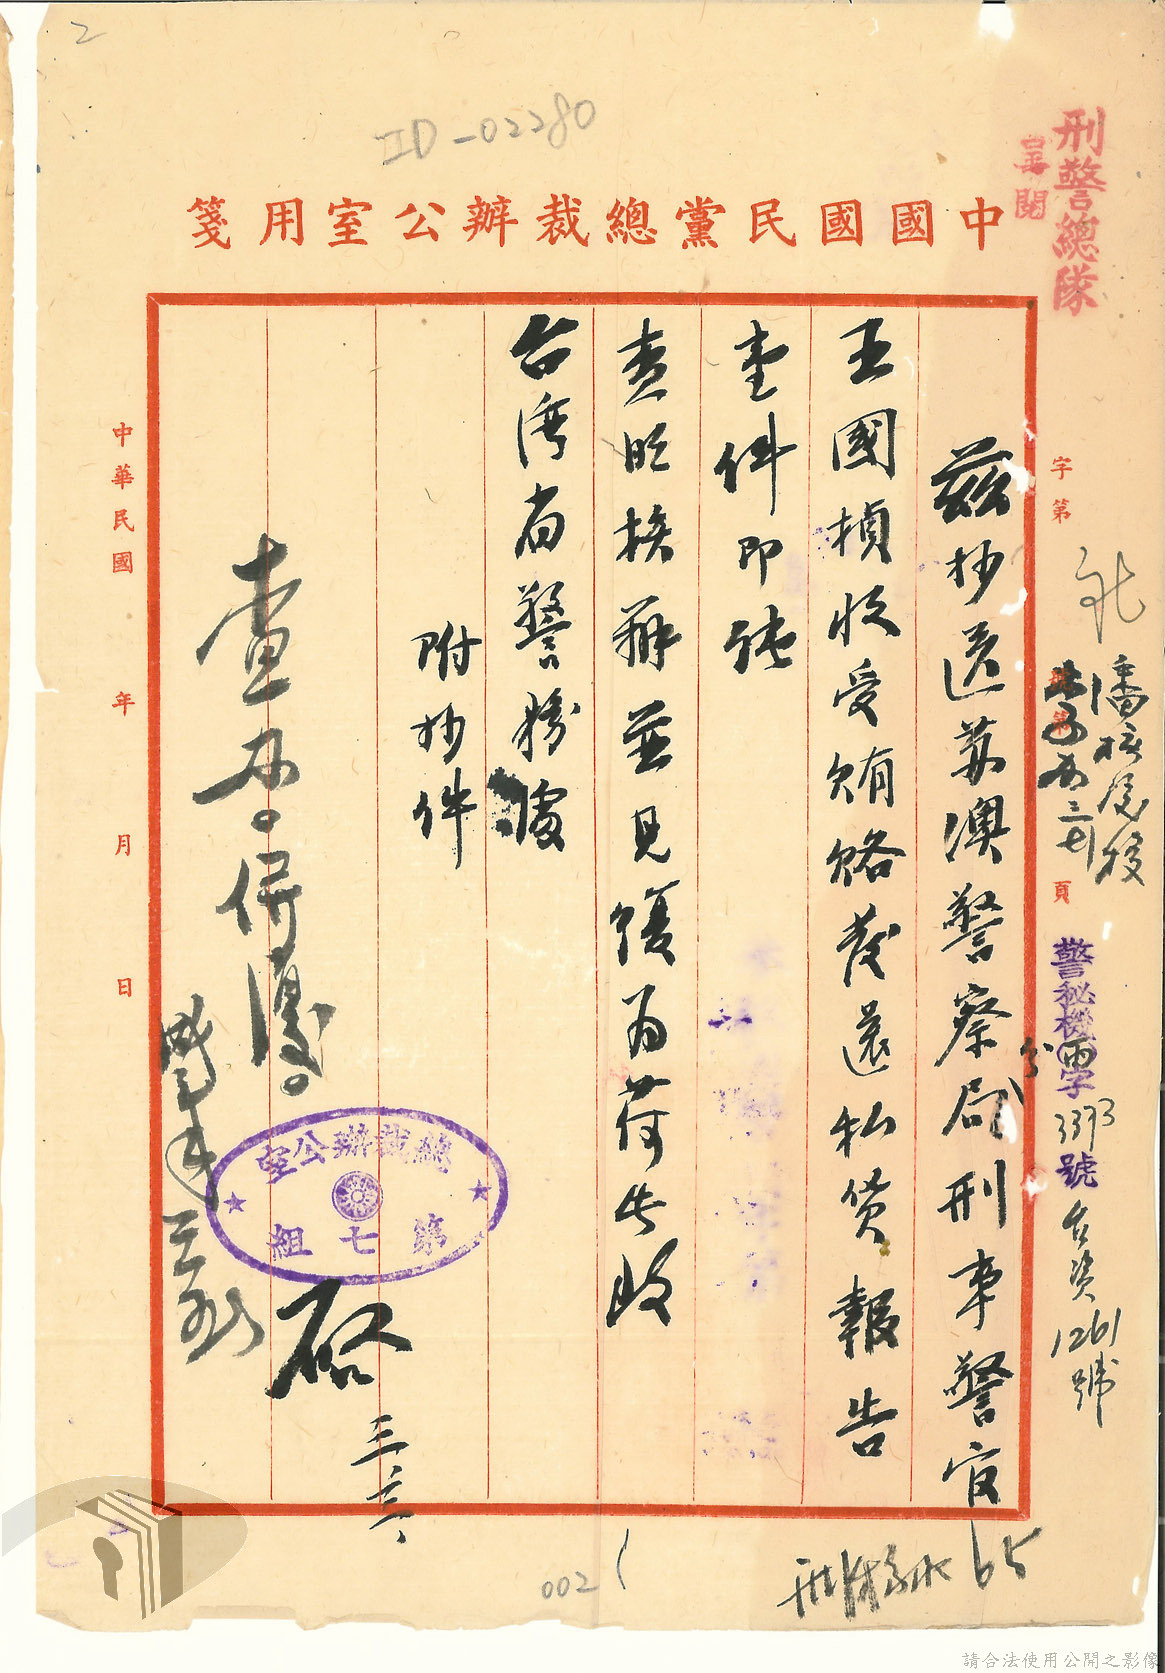 2
ID-02280
刑警總隊
呈閱
中國國民黨總裁辦公室用箋
字第
頁
警秘機(丙)字3393號
台資1261號
茲抄送蘇澳警察分局刑事警官
王國楨收受賄賂發還私貨報告
壹件即號
查照核辦並見復為荷此致
台灣省警務處
附抄件
總裁辦公室
第七組
啟
三、六、
查办。併復。
中華民國 年 月 日
65
002
請合法使用公開之影像